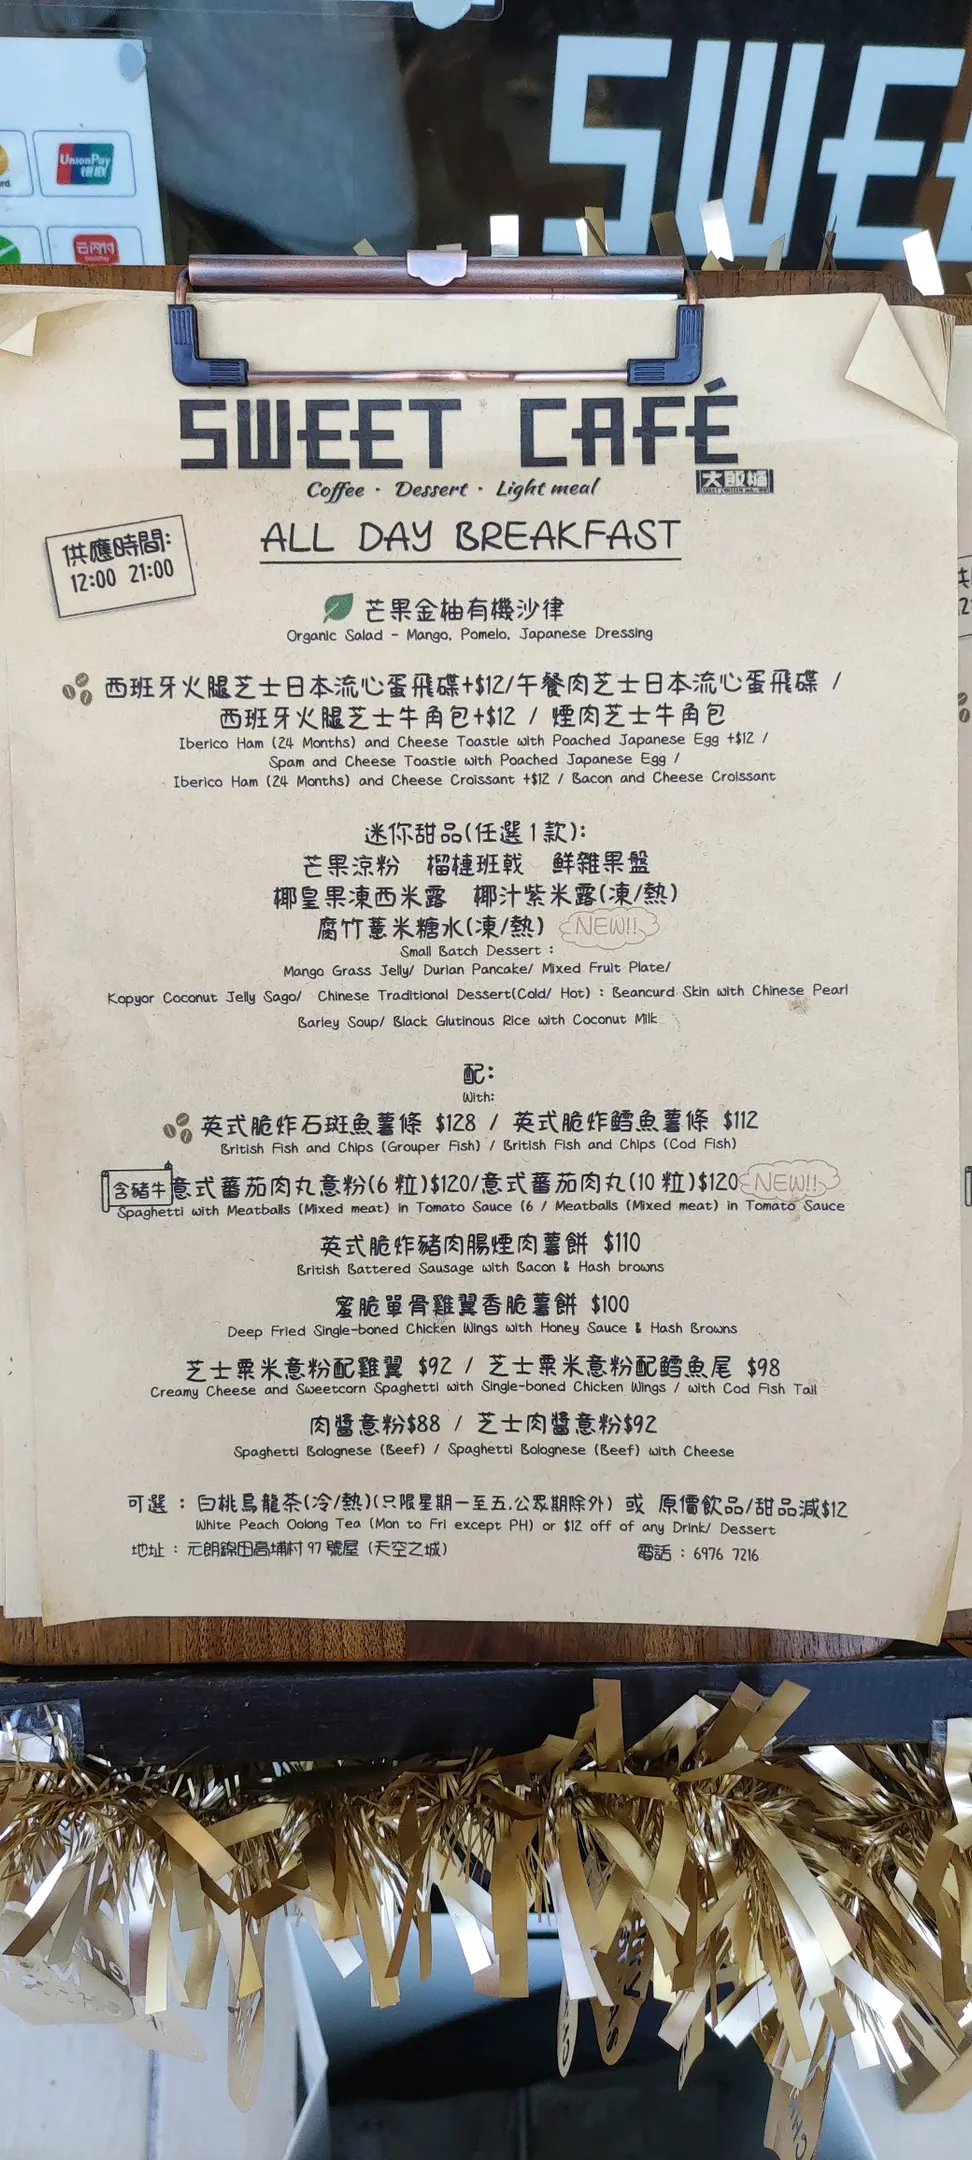 UnionPay
银联
云闪付
SWEE
SWEET CAFÉ
Coffee · Dessert · Light meal
大飯桶
ALL DAY BREAKFAST
供應時間:
12:00 21:00
芒果金柚有機沙律
Organic Salad - Mango, Pomelo, Japanese Dressing
西班牙火腿芝士日本流心蛋飛碟+$12/午餐肉芝士日本流心蛋飛碟 /
西班牙火腿芝士牛角包+$12 / 煙肉芝士牛角包
Iberico Ham (24 Months) and Cheese Toastie with Poached Japanese Egg +$12 /
Spam and Cheese Toastie with Poached Japanese Egg /
Iberico Ham (24 Months) and Cheese Croissant +$12 / Bacon and Cheese Croissant
迷你甜品(任選1款):
芒果涼粉 榴槤班戟 鮮雜果盤
椰皇果凍西米露 椰汁紫米露(凍/熱)
腐竹薏米糖水(凍/熱) NEW!!
Small Batch Dessert :
Mango Grass Jelly/ Durian Pancake/ Mixed Fruit Plate/
Kopyor Coconut Jelly Sago/ Chinese Traditional Dessert(Cold/ Hot) : Beancurd Skin with Chinese Pearl
Barley Soup/ Black Glutinous Rice with Coconut Milk
配:
With:
英式脆炸石斑魚薯條 $128 / 英式脆炸鱈魚薯條 $112
British Fish and Chips (Grouper Fish) / British Fish and Chips (Cod Fish)
含豬牛 意式蕃茄肉丸意粉(6粒)$120/意式蕃茄肉丸(10粒)$120 NEW!!
Spaghetti with Meatballs (Mixed meat) in Tomato Sauce (6 / Meatballs (Mixed meat) in Tomato Sauce
英式脆炸豬肉腸煙肉薯餅 $110
British Battered Sausage with Bacon & Hash browns
蜜脆單骨雞翼香脆薯餅 $100
Deep Fried Single-boned Chicken Wings with Honey Sauce & Hash Browns
芝士粟米意粉配雞翼 $92 / 芝士粟米意粉配鱈魚尾 $98
Creamy Cheese and Sweetcorn Spaghetti with Single-boned Chicken Wings / with Cod Fish Tail
肉醬意粉$88 / 芝士肉醬意粉$92
Spaghetti Bolognese (Beef) / Spaghetti Bolognese (Beef) with Cheese
可選 : 白桃烏龍茶(冷/熱)(只限星期一至五,公眾期除外) 或 原價飲品/甜品減$12
White Peach Oolong Tea (Mon to Fri except PH) or $12 off of any Drink/ Dessert
地址 : 元朗錦田高埔村97號屋 (天空之城) 電話 : 6976 7216